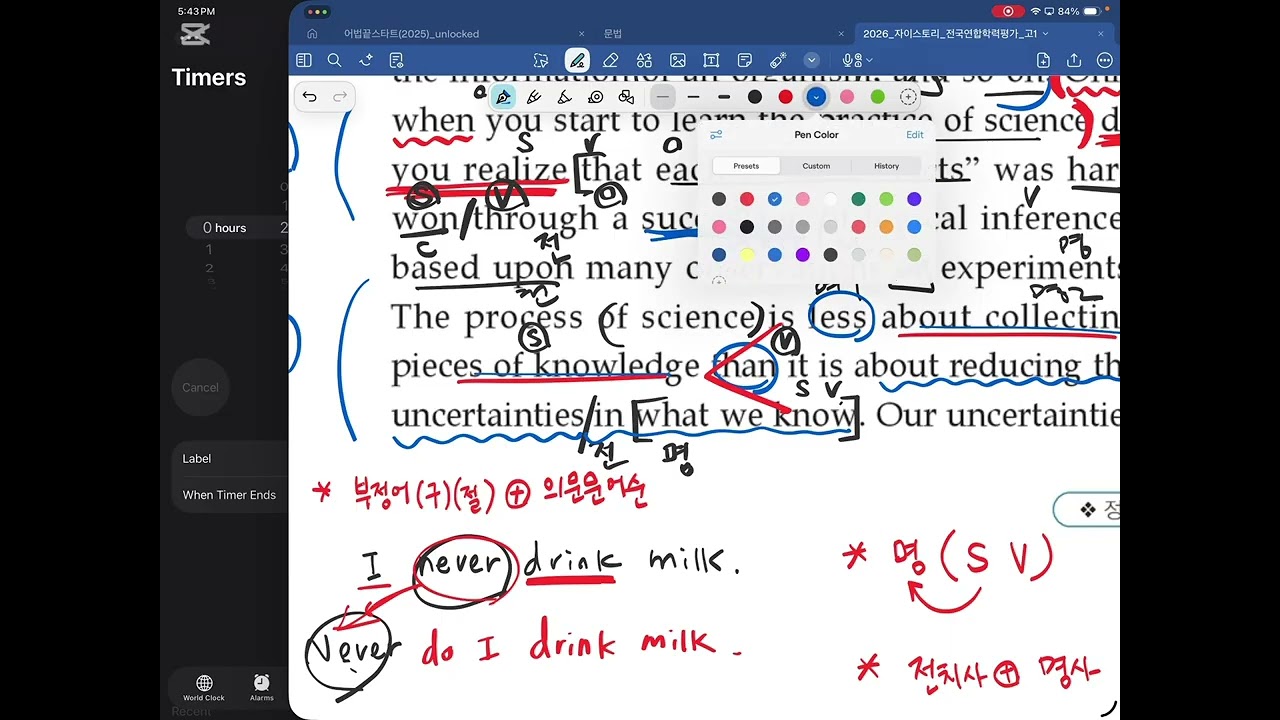 5:43 PM
84%
Timers
어법끝스타트(2025)_unlocked
문법
2026_자이스토리_전국연합학력평가_고1
the information of an organism, and so on.
when you start to learn the practice of science) d
S V O
Pen Color
Edit
Presets
Custom
History
you realize [that eac ts" was har
S V O V
won / through a suc cal inference
C 전 명
based upon many c experiments
전 명1 명2
The process (of science) is less about collectin
S V
pieces of knowledge than it is about reducing th
S V
uncertainties / in [what we know]. Our uncertaintie
전 명
0 hours
1
2
3
Cancel
Label
When Timer Ends
World Clock
Alarms
Recent
* 부정어(구)(절) ⊕ 의문문어순
❖ 정
I never drink milk.
* 명 (S V)
Never do I drink milk.
* 전치사 ⊕ 명사